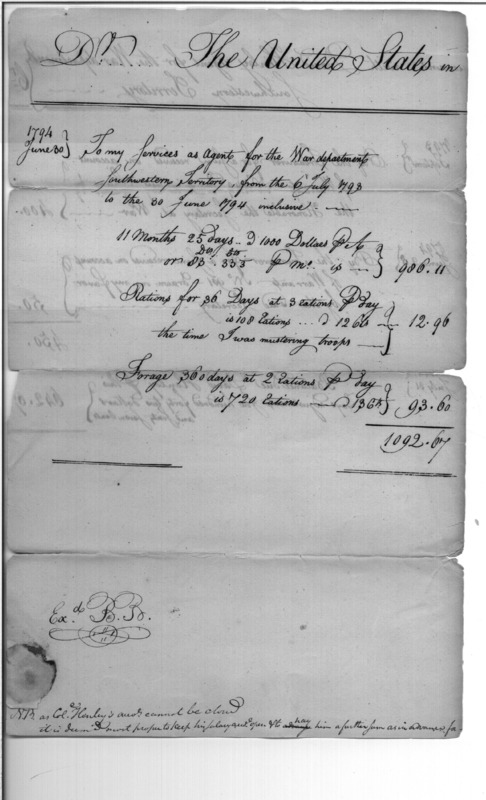 Dr. The United States in
1794
June 30 } To my Services as Agent for the War department
Southwestern Territory, from the 6 July 1793
to the 30 June 1794 inclusive
11 Months 25 days @ 1000 Dollars Pr A
or 83. 333 P Mo. is } 986.11
Rations for 36 Days at 3 rations P day
is 108 Rations @ 12 Cts
the time I was mustering troops } 12.96
Forage, 360 days at 2 rations P day
is 720 Rations @ 13 Cts } 93.60
1092.67
Exd. B.B.
NB. as Col. Henley's accts cannot be closed
it is deem'd most proper to keep his salary acct open & to pay him a further sum as in advance for